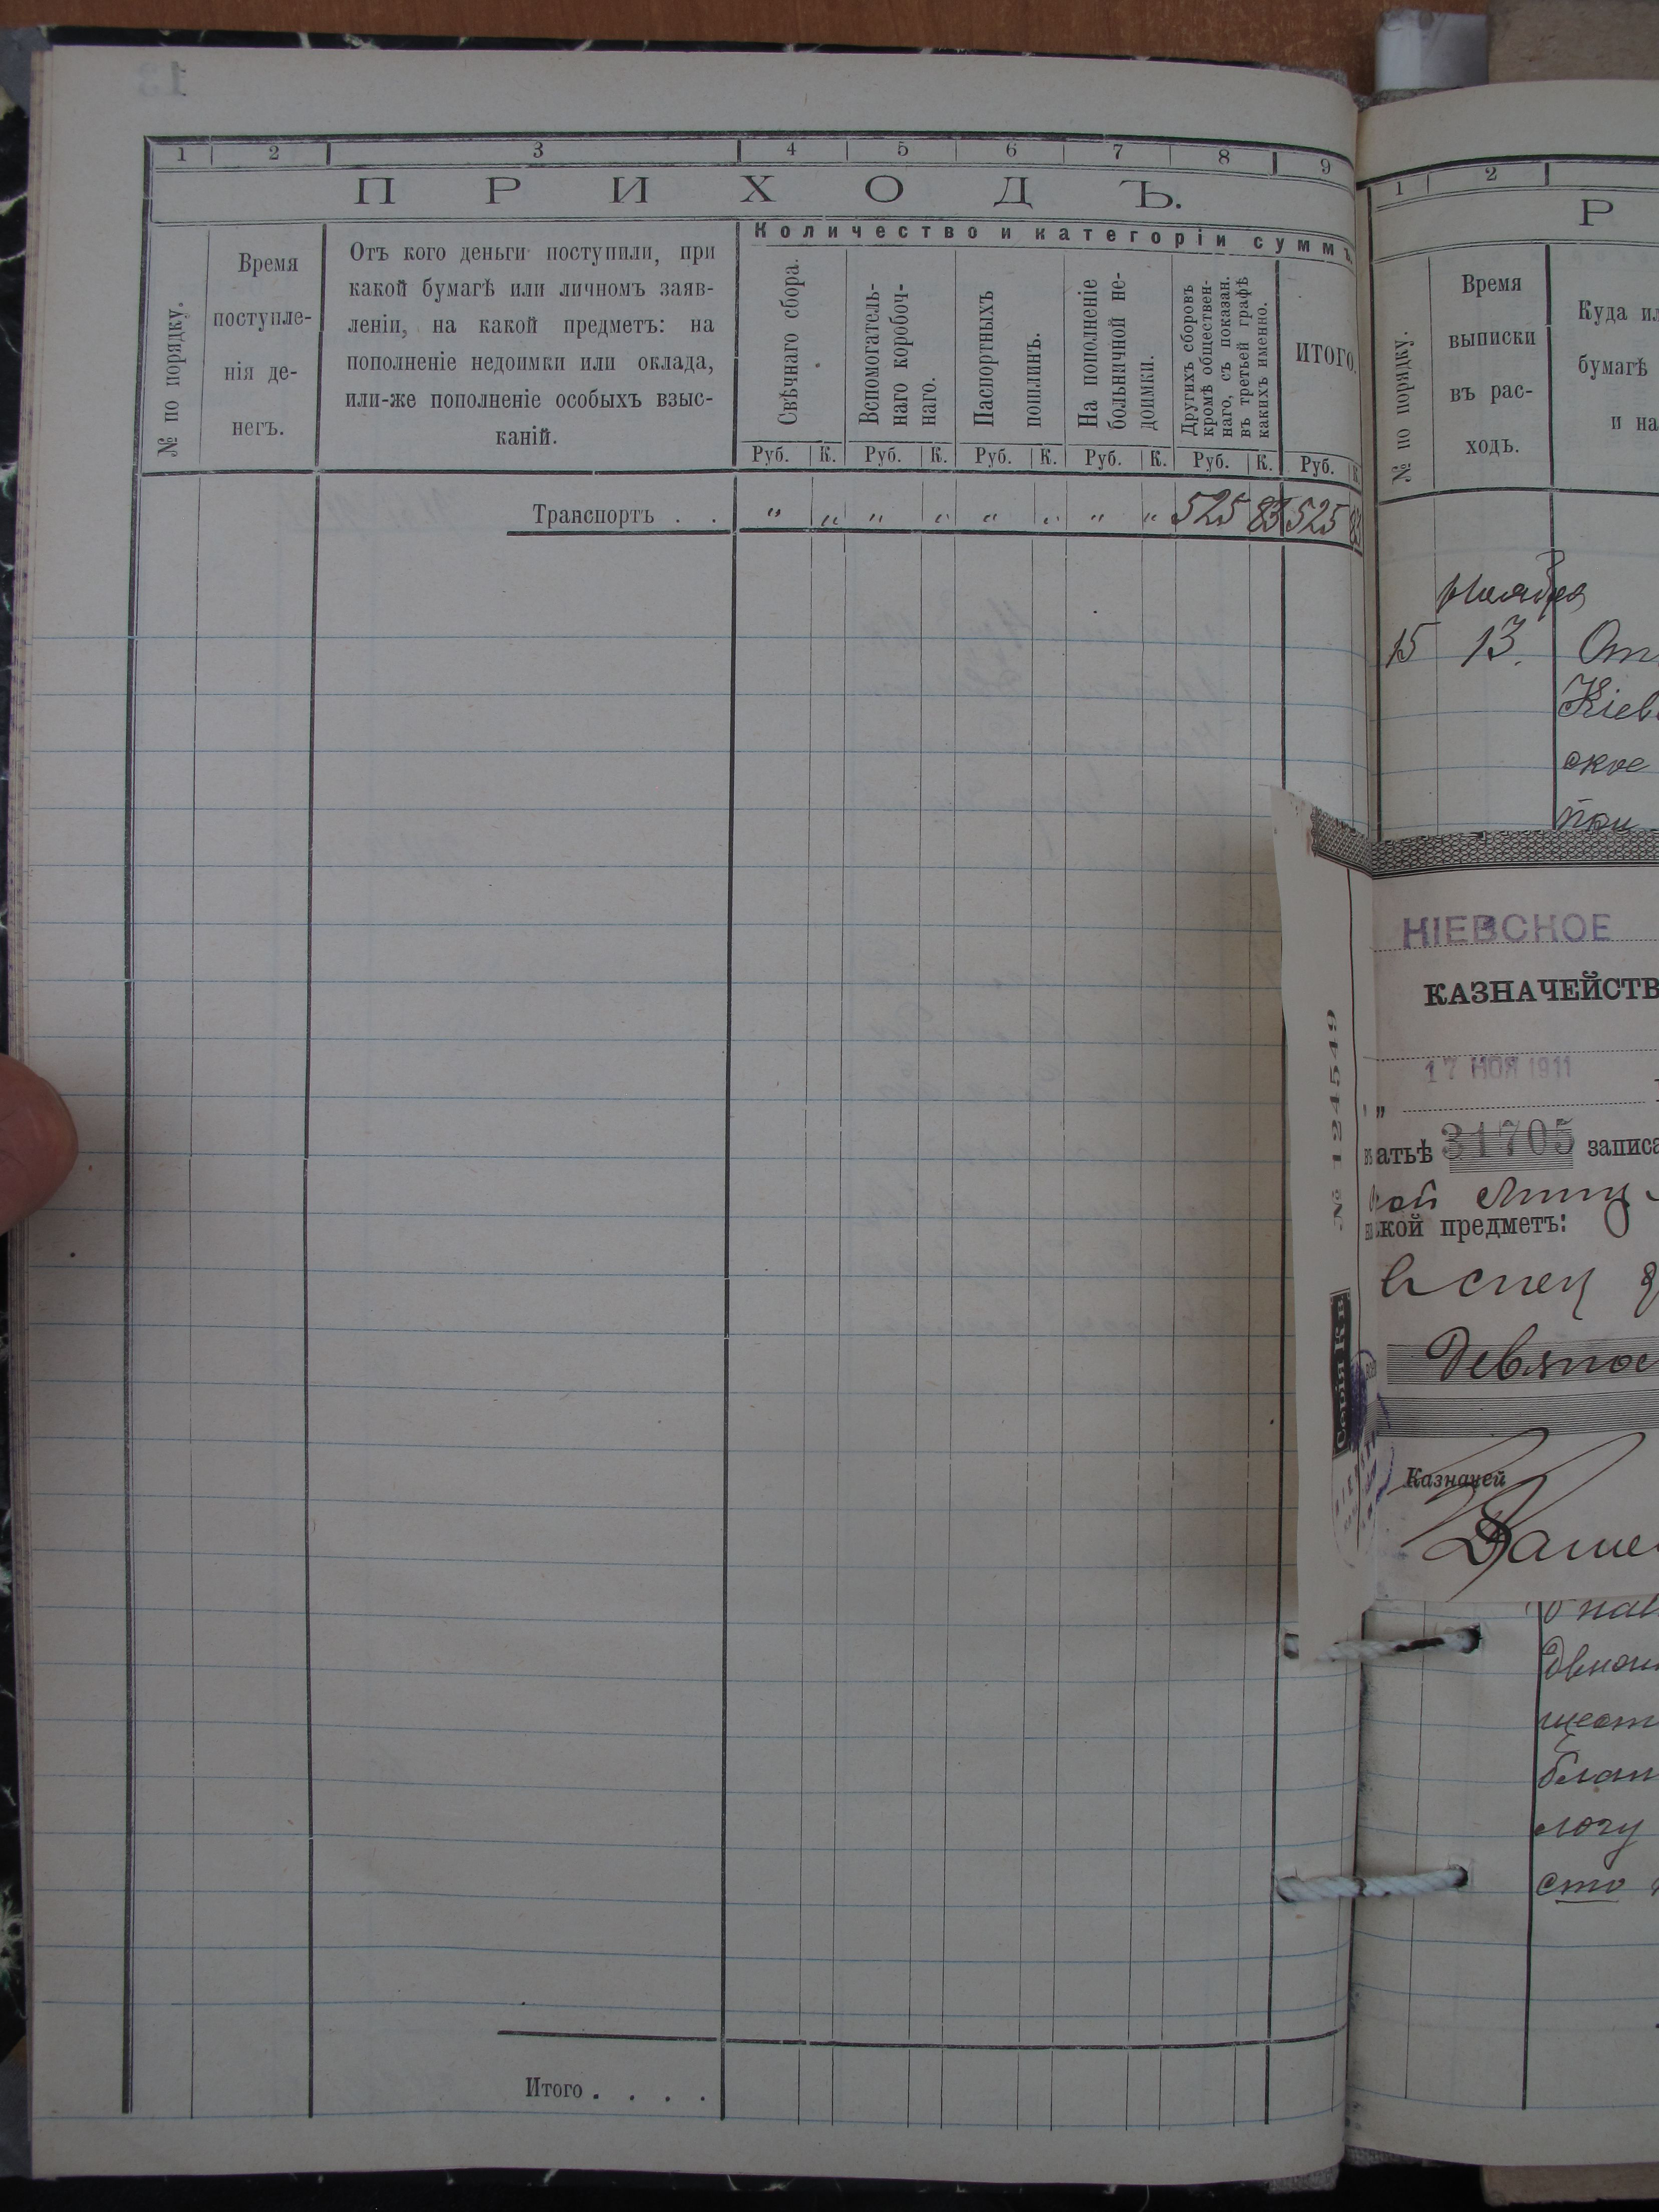 1 2 3 4 5 6 7 8 9
ПРИХОДЪ.
№ по порядку.
Время
поступле-
нія де-
негъ.
Отъ кого деньги поступили, при
какой бумагѣ или личномъ заяв-
леніи, на какой предметъ: на
пополненіе недоимки или оклада,
или-же пополненіе особыхъ взыс-
каній.
Количество и категоріи суммъ.
Свѣчнаго сбора.
Вспомогатель-
наго коробоч-
наго.
Паспортныхъ
пошлинъ.
На пополненіе
больничной не-
доимки.
Другихъ сборовъ
кромѣ обществен-
наго, съ показан.
въ третьей графѣ
какихъ именно.
ИТОГО.
Руб. К. Руб. К. Руб. К. Руб. К. Руб. К. Руб. К.
Транспортъ . . " " " " " " " " 525 83 525 83
Итого . . . .
1 2
Р
№ по порядку.
Время
выписки
въ рас-
ходъ.
Куда ил
бумагѣ
и на
Ноября
15 13. От
Кіев
ское
при
№ 124549
Серія К п
КІЕВСКОЕ
КАЗНАЧЕЙСТВ
17 НОЯ 1911
"
атьѣ 31705 записа
кой предметъ:
в спец
Девянос
Казначей
щест
блан
логу
сто